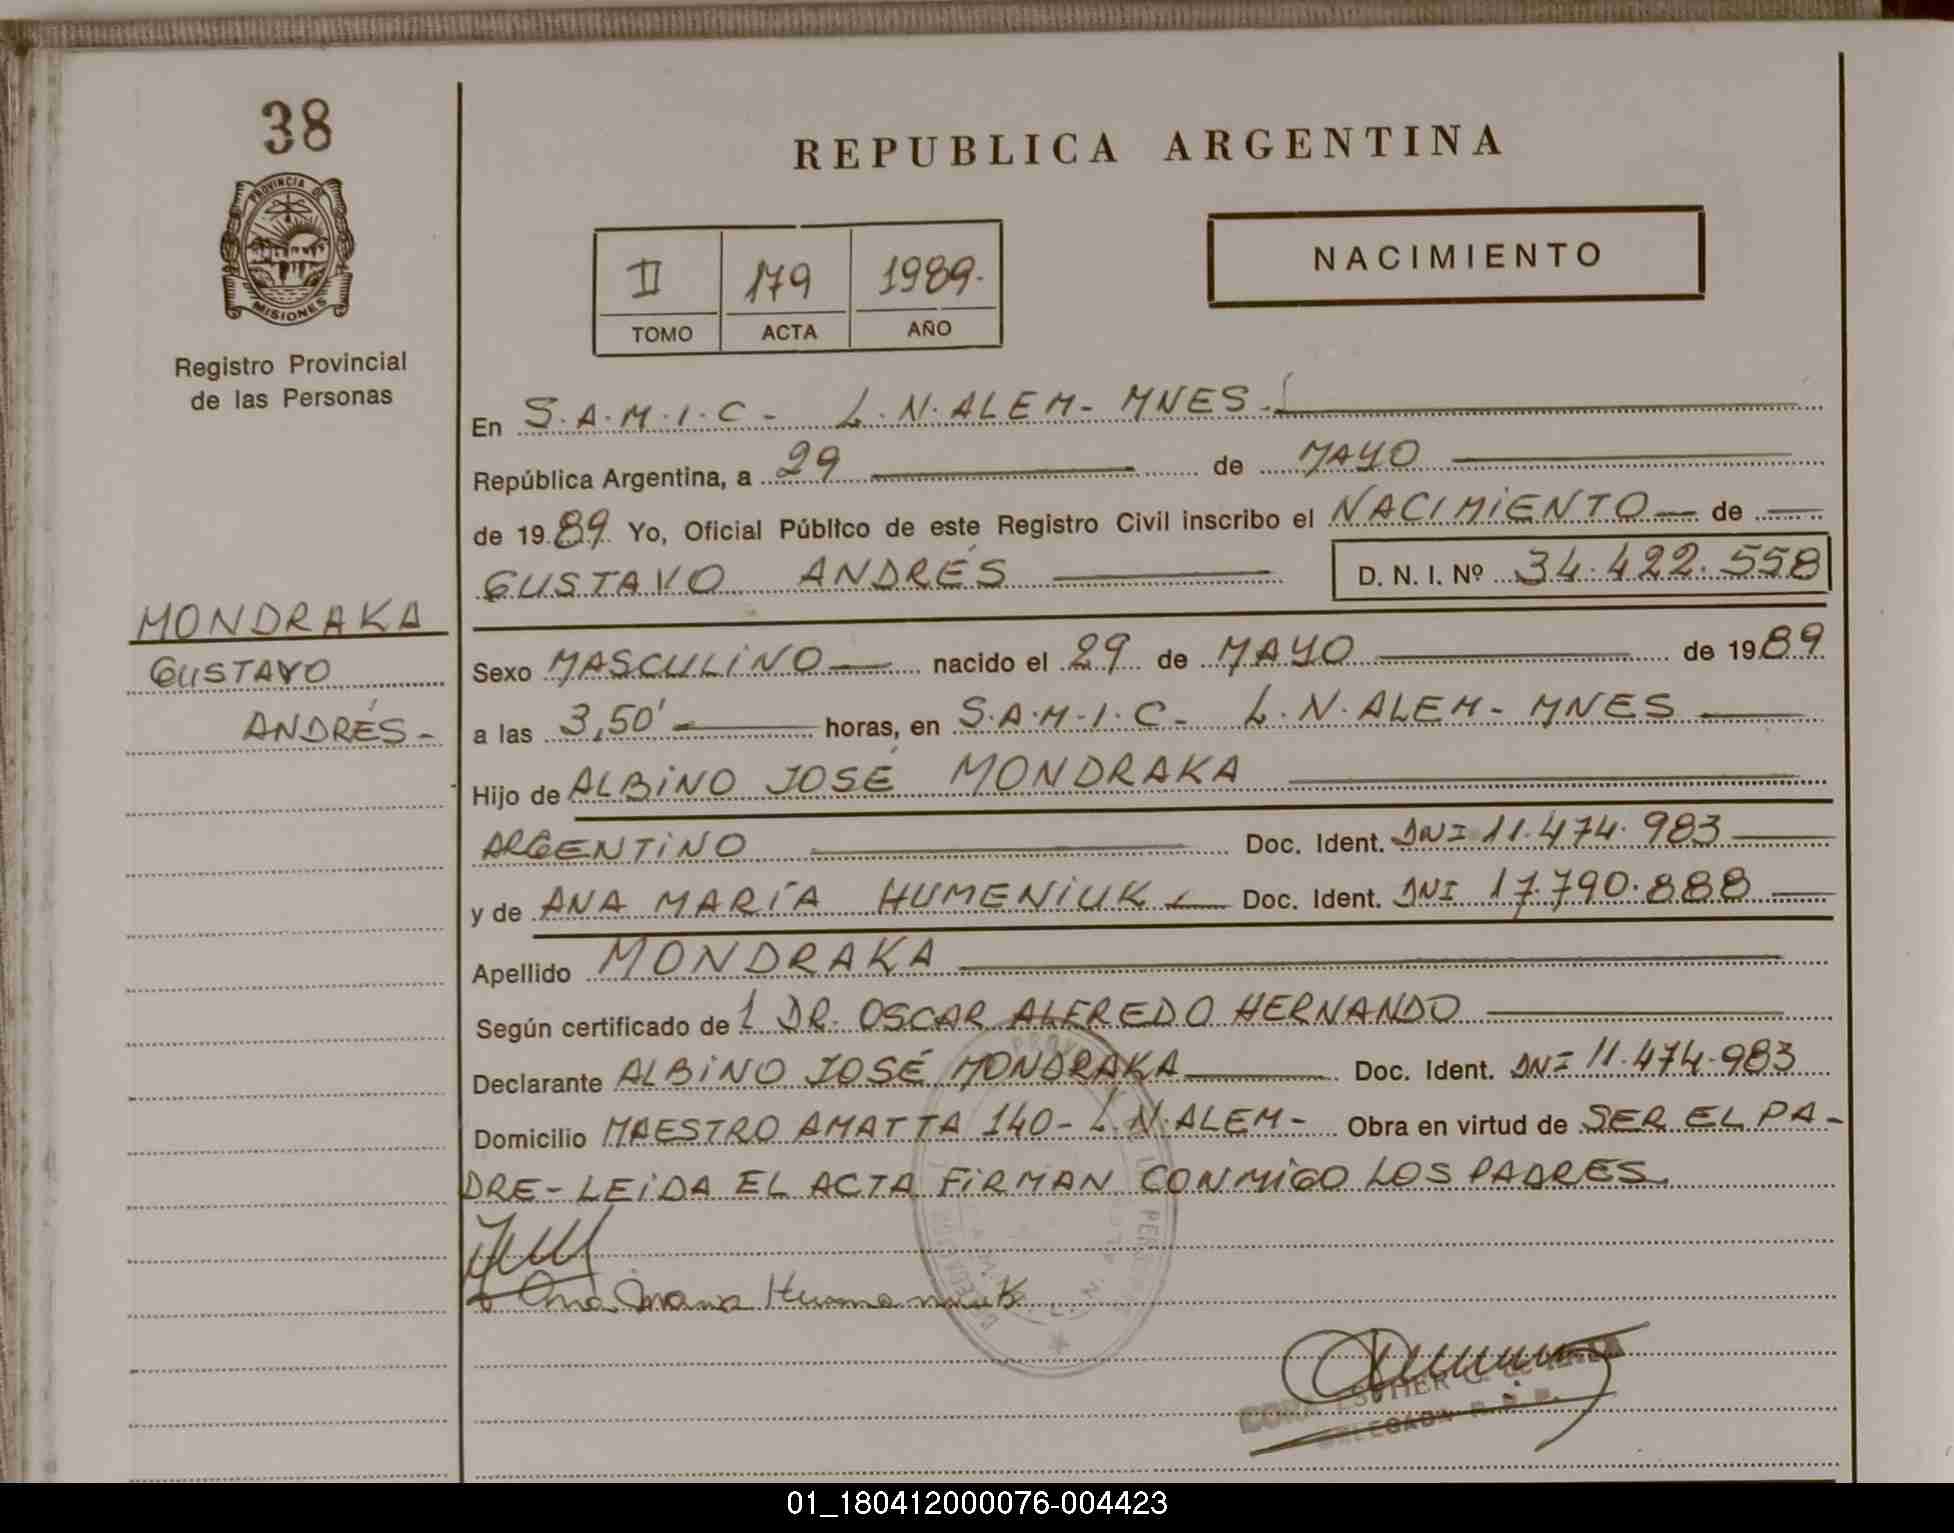 38
PROVINCIA DE
MISIONES
Registro Provincial
de las Personas
MONDRAKA
GUSTAVO
ANDRÉS-
REPUBLICA ARGENTINA
II 179 1989.
TOMO ACTA AÑO
NACIMIENTO
En S.A.M.I.C- L.N.ALEM- MNES.
República Argentina, a 29 de MAYO
de 1989 Yo, Oficial Público de este Registro Civil inscribo el NACIMIENTO de
GUSTAVO ANDRÉS D. N. I. Nº 34.422.558
Sexo MASCULINO nacido el 29 de MAYO de 1989
a las 3,50' horas, en S.A.M.I.C- L.N.ALEM- MNES
Hijo de ALBINO JOSÉ MONDRAKA
ARGENTINO Doc. Ident. DNI 11.474.983
y de ANA MARÍA HUMENIUK Doc. Ident. DNI 17.790.888
Apellido MONDRAKA
Según certificado de 1 DR. OSCAR ALFREDO HERNANDO
Declarante ALBINO JOSÉ MONDRAKA Doc. Ident. DNI 11.474.983
Domicilio MAESTRO AMATTA 140- L.N.ALEM- Obra en virtud de SER EL PA-
DRE- LEIDA EL ACTA FIRMAN CONMIGO LOS PADRES.
Ana Maria
ESTHER
DELEGADA
01_180412000076-004423